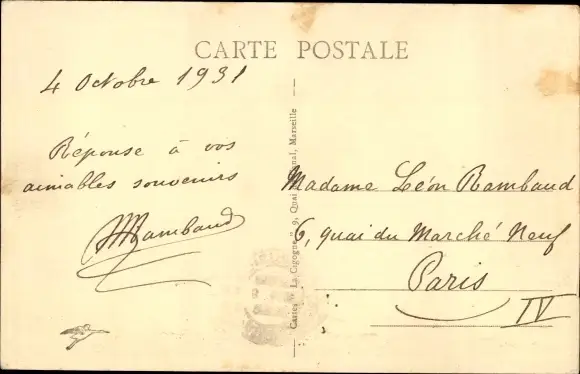 CARTE POSTALE
4 Octobre 1931
Réponse à vos
aimables souvenirs
Rambaud
Cartes "La Cigogne" 9, Quai Marseille
Madame Léon Rambaud
6, quai du Marché Neuf
Paris
IV